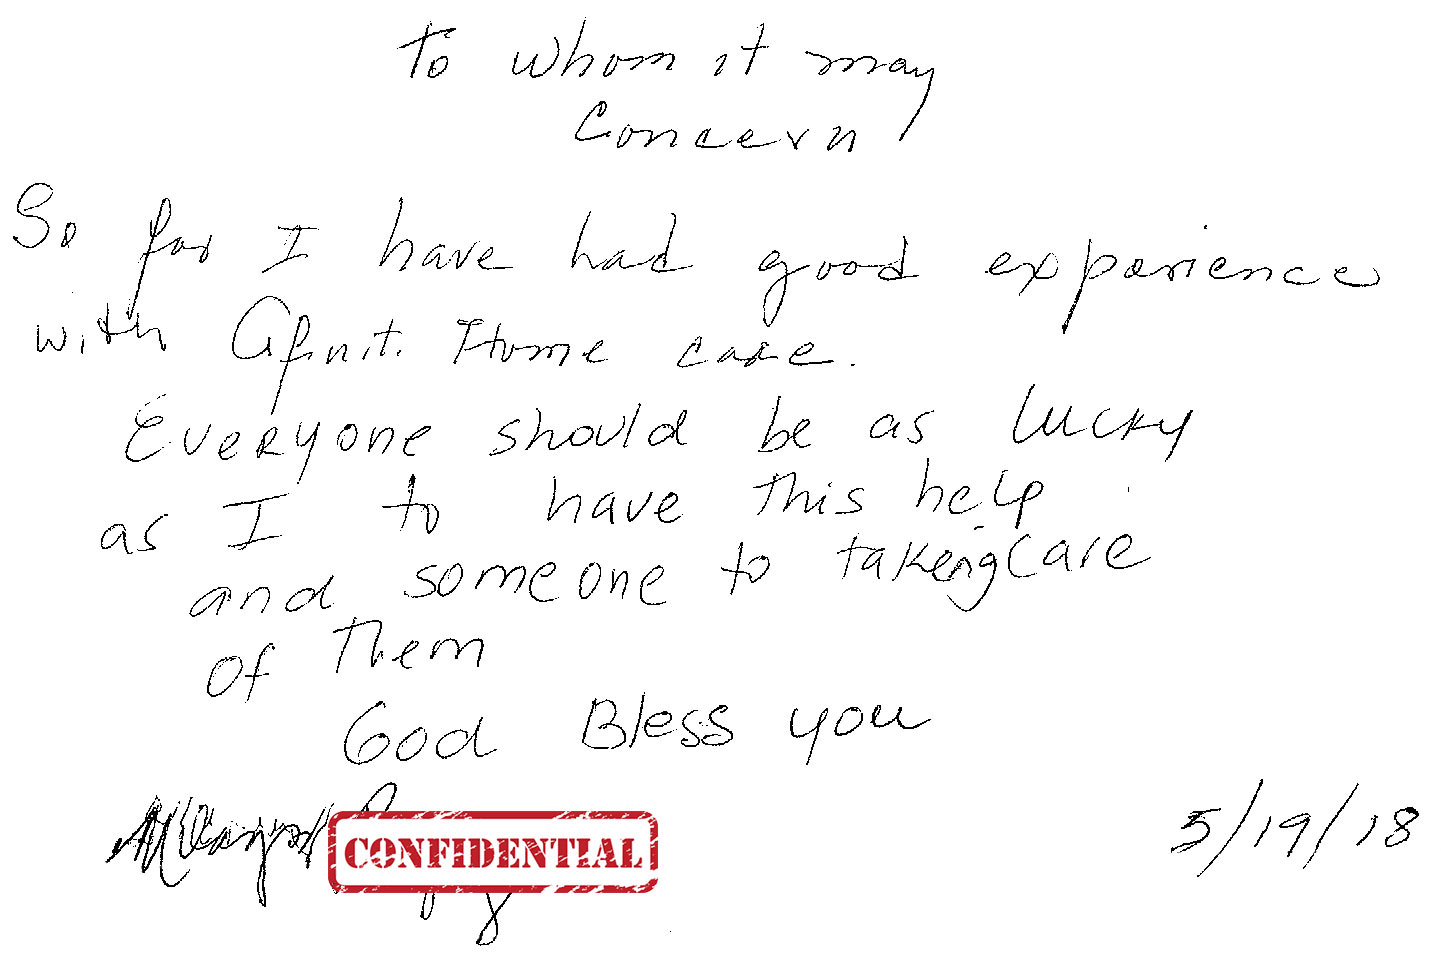 To whom it may
Concern
So far I have had good experience
with Afinit. Home care.
Everyone should be as lucky
as I to have this help
and someone to takeing care
of them
God Bless you
CONFIDENTIAL
5/19/18